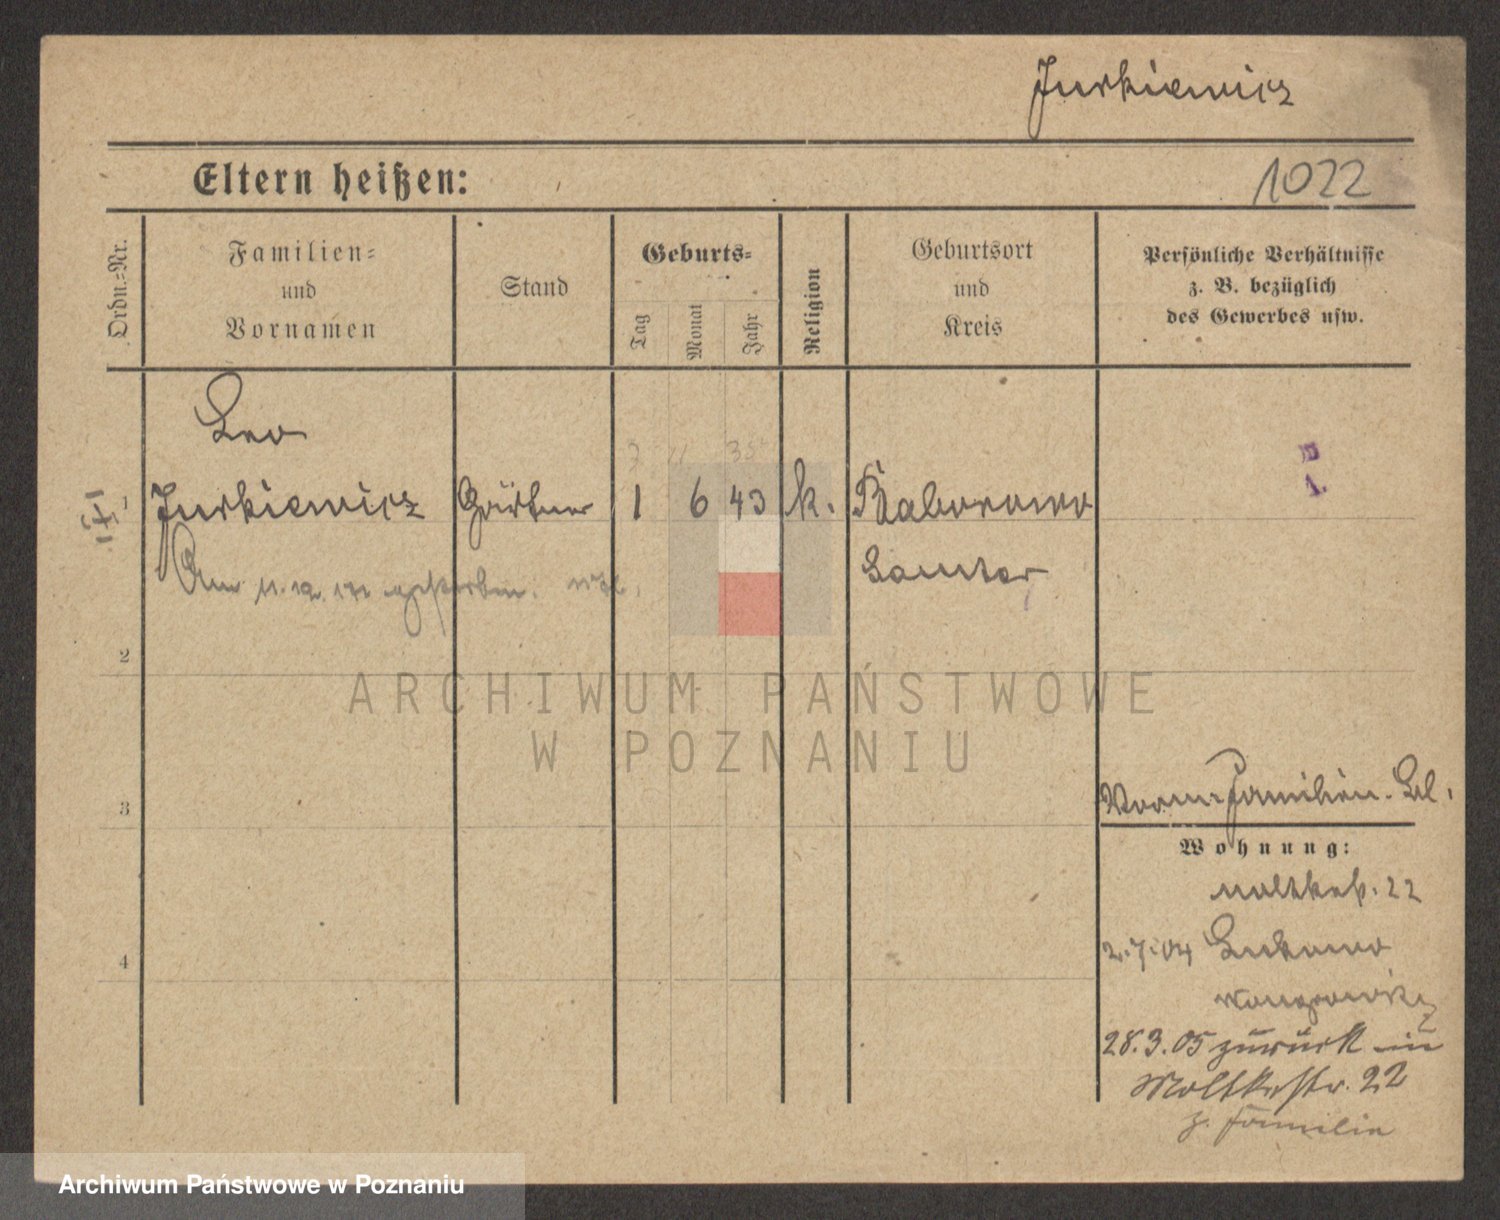 Jurkiewicz
Eltern heißen:
1022
Ordn.-Nr.
Familien-
und
Vornamen
Stand
Geburts-
Tag
Monat
Jahr
Religion
Geburtsort
und
Kreis
Persönliche Verhältnisse
z. B. bezüglich
des Gewerbes usw.
Leo
1 Jurkiewicz Gärtner 1 6 43 k. Baborowo
Samter
Am 11. 12. gestorben.
2
ARCHIWUM PAŃSTWOWE
W POZNANIU
3
Familien-Bl.
Wohnung:
Moltkestr. 22
4
2.7.04 Lukowo
28.3.05 zurück in
Moltkestr. 22
z. Familie
Archiwum Państwowe w Poznaniu